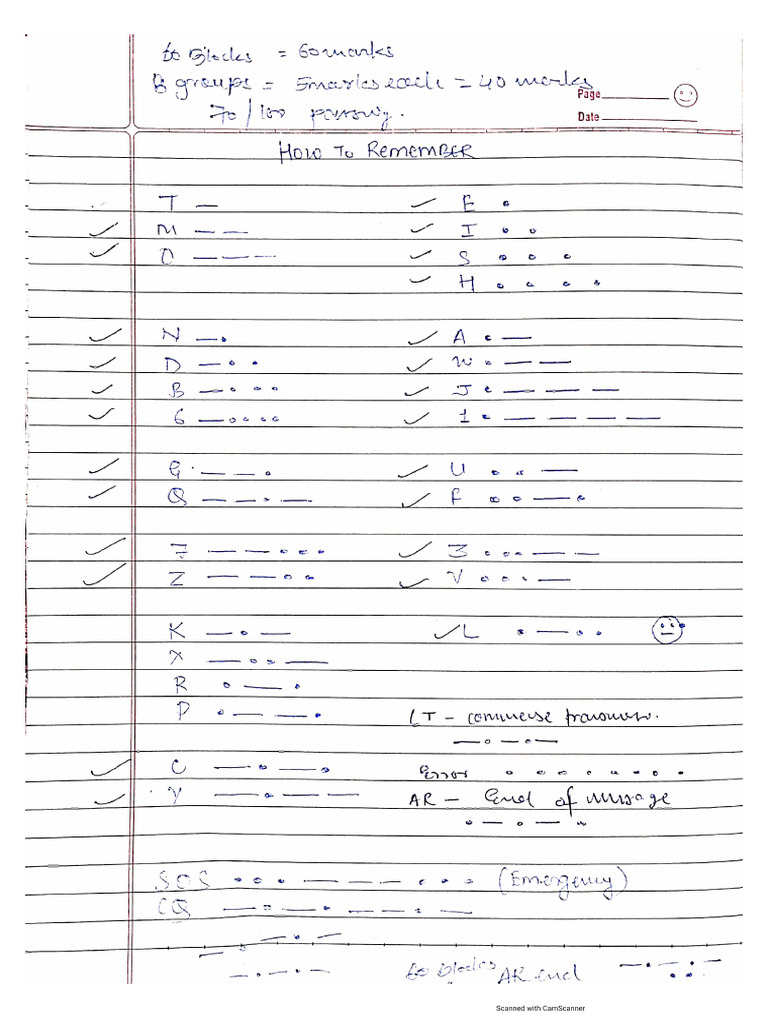 60 Blocks = 60 marks
8 groups = 5 marks each = 40 marks
70/100 passing.
Page
Date
HOW TO REMEMBER
T — E •
M — — I • •
O — — — S • • •
H • • • •
N — • A • —
D — • • W • — —
B — • • • J • — — —
6 — • • • • 1 • — — — —
G — — • U • • —
Q — — • — F • • — •
7 — — • • • 3 • • • — —
Z — — • • V • • • —
K — • — L • — • •
X — • • —
R • — •
P • — — • LT -
— • — • —
C — • — • Error • • • • • • • •
Y — • — — AR - End of message
• — • — •
SOS • • • — — — • • • (Emergency)
CQ — • — • — — • —
— — • — • —
— • — • — 60 blocks AR end
Scanned with CamScanner